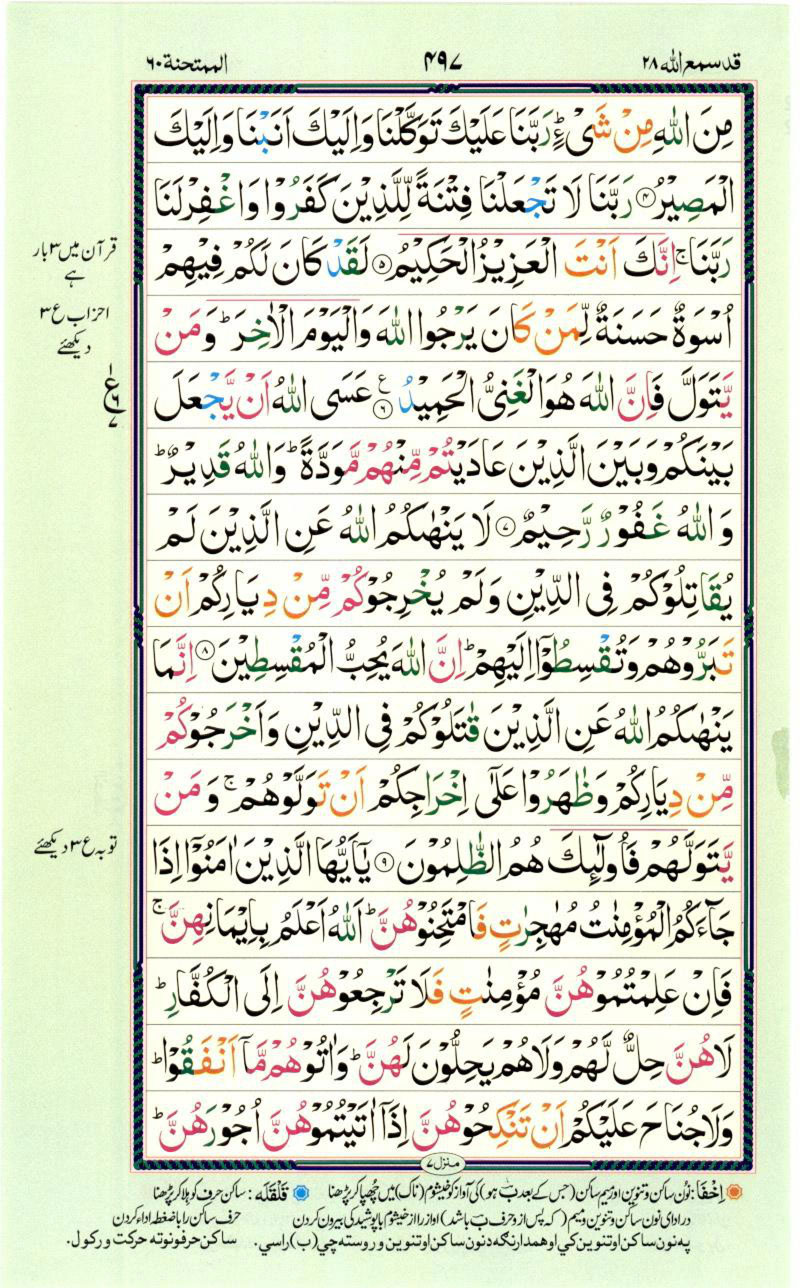 قد سمع الله ۲۸
۴۹۷
الممتحنة ۶۰
مِنَ اللّٰهِ مِنْ شَیْءٍ ؕ رَبَّنَا عَلَیْكَ تَوَكَّلْنَا وَاِلَیْكَ اَنَبْنَا وَاِلَیْكَ
الْمَصِیْرُ ۴ رَبَّنَا لَا تَجْعَلْنَا فِتْنَةً لِّلَّذِیْنَ كَفَرُوْا وَاغْفِرْلَنَا
رَبَّنَا ۚ اِنَّكَ اَنْتَ الْعَزِیْزُ الْحَكِیْمُ ۵ لَقَدْ كَانَ لَكُمْ فِیْهِمْ
اُسْوَةٌ حَسَنَةٌ لِّمَنْ كَانَ یَرْجُوا اللّٰهَ وَالْیَوْمَ الْاٰخِرَ ؕ وَمَنْ
یَّتَوَلَّ فَاِنَّ اللّٰهَ هُوَ الْغَنِیُّ الْحَمِیْدُ ۶ ع عَسَی اللّٰهُ اَنْ یَّجْعَلَ
بَیْنَكُمْ وَبَیْنَ الَّذِیْنَ عَادَیْتُمْ مِّنْهُمْ مَّوَدَّةً ؕ وَاللّٰهُ قَدِیْرٌ ؕ
وَاللّٰهُ غَفُوْرٌ رَّحِیْمٌ ۷ لَا یَنْهٰىكُمُ اللّٰهُ عَنِ الَّذِیْنَ لَمْ
یُقَاتِلُوْكُمْ فِی الدِّیْنِ وَلَمْ یُخْرِجُوْكُمْ مِّنْ دِیَارِكُمْ اَنْ
تَبَرُّوْهُمْ وَتُقْسِطُوْۤا اِلَیْهِمْ ؕ اِنَّ اللّٰهَ یُحِبُّ الْمُقْسِطِیْنَ ۸ اِنَّمَا
یَنْهٰىكُمُ اللّٰهُ عَنِ الَّذِیْنَ قٰتَلُوْكُمْ فِی الدِّیْنِ وَاَخْرَجُوْكُمْ
مِّنْ دِیَارِكُمْ وَظٰهَرُوْا عَلٰۤی اِخْرَاجِكُمْ اَنْ تَوَلَّوْهُمْ ۚ وَمَنْ
یَّتَوَلَّهُمْ فَاُولٰٓئِكَ هُمُ الظّٰلِمُوْنَ ۹ یٰۤاَیُّهَا الَّذِیْنَ اٰمَنُوْۤا اِذَا
جَآءَكُمُ الْمُؤْمِنٰتُ مُهٰجِرٰتٍ فَامْتَحِنُوْهُنَّ ؕ اَللّٰهُ اَعْلَمُ بِاِیْمَانِهِنَّ ۚ
فَاِنْ عَلِمْتُمُوْهُنَّ مُؤْمِنٰتٍ فَلَا تَرْجِعُوْهُنَّ اِلَی الْكُفَّارِ ؕ
لَا هُنَّ حِلٌّ لَّهُمْ وَلَا هُمْ یَحِلُّوْنَ لَهُنَّ ؕ وَاٰتُوْهُمْ مَّاۤ اَنْفَقُوْا ؕ
وَلَا جُنَاحَ عَلَیْكُمْ اَنْ تَنْكِحُوْهُنَّ اِذَاۤ اٰتَیْتُمُوْهُنَّ اُجُوْرَهُنَّ ؕ
منزل ۷
قرآن میں ۳ بار
ہے
احزاب ع ۳
دیکھئے
ع
۶
۷
توبہ ع ۳ دیکھئے
اِخفَا: نون ساکن و تنوین اور میم ساکن (جس کے بعد ب ہو) کی آواز کو خیشوم (ناک) میں چھپا کر پڑھنا قَلقَلَه: ساکن حرف کو ہلا کر پڑھنا
در ادای نون ساکن و تنوین و میم (که پس از و حرف ب باشد) اواز را از خیشوم با پوشیدگی بیرون کردن حرف ساکن را با ضغطه اداء کردن
په نون ساکن او تنوین کي او همدارنګه د نون ساکن او تنوین وروسته چي (ب) راسي. ساکن حرفو نو ته حرکت ورکول.